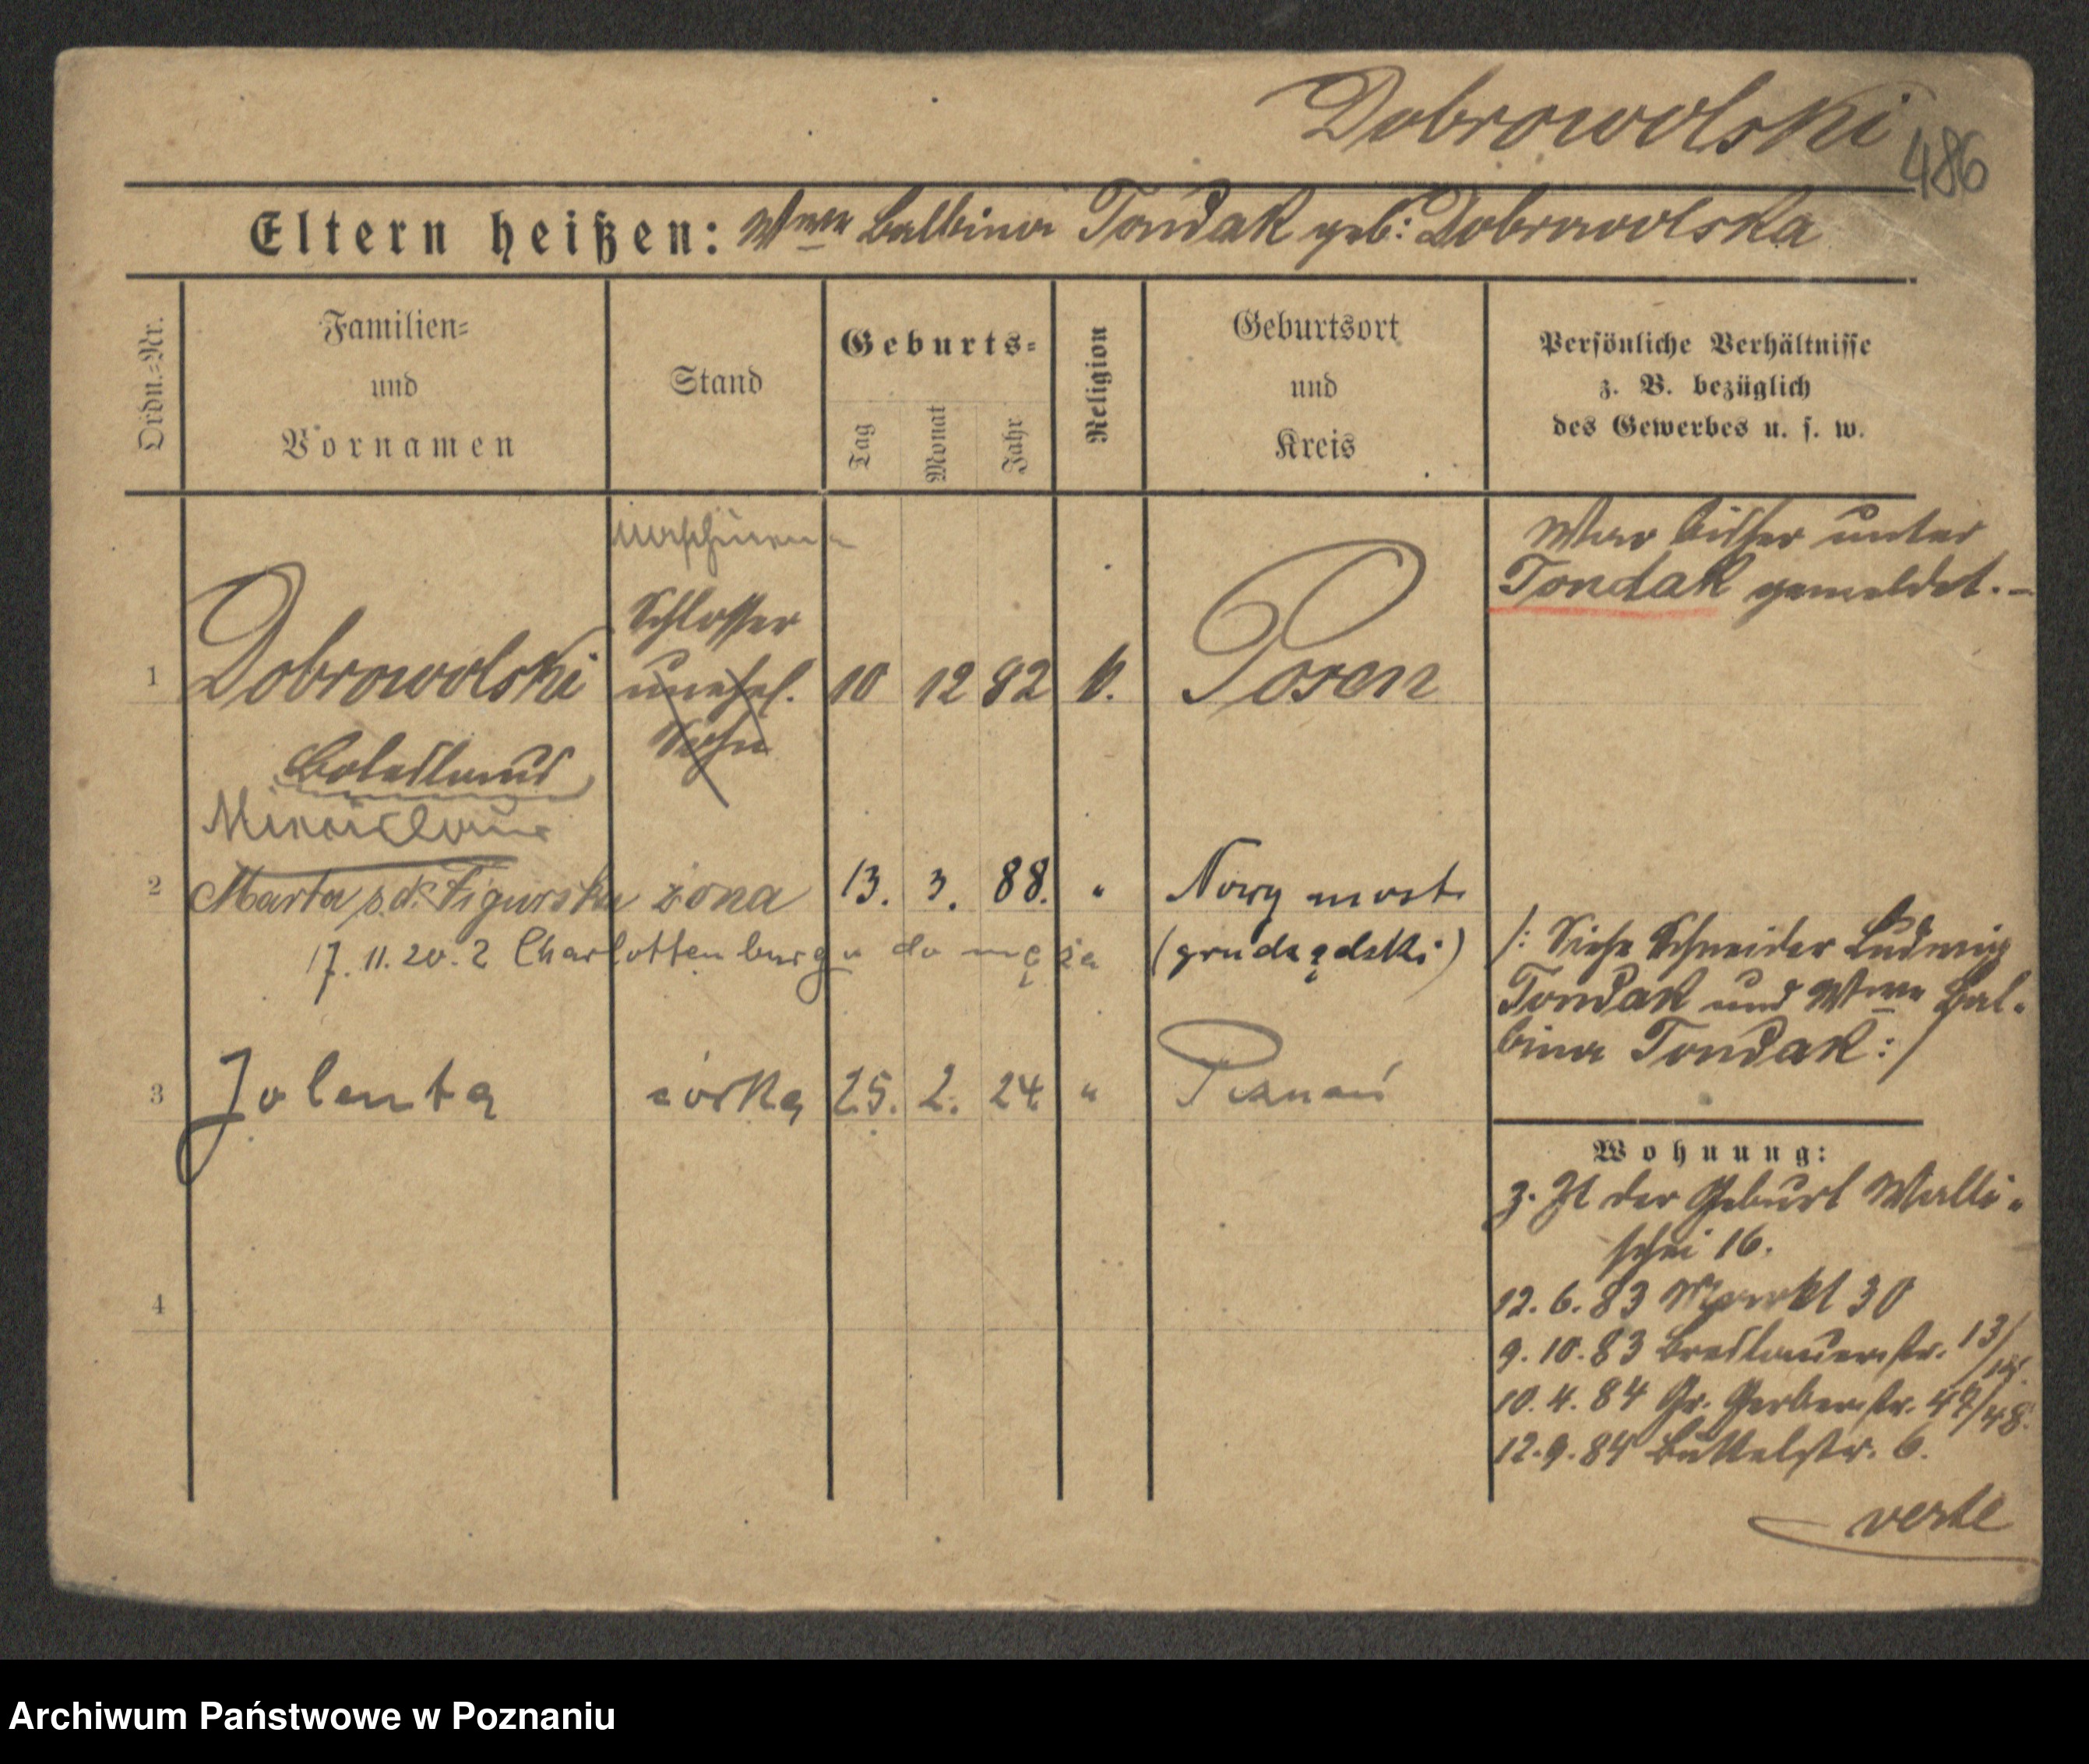 Dobrowolski
486
Eltern heißen: Wwe Balbina Tondak geb: Dobrowolska
Ordn.=Nr.
Familien=
und
Vornamen
Stand
Geburts=
Tag
Monat
Jahr
Religion
Geburtsort
und
Kreis
Persönliche Verhältnisse
z. B. bezüglich
des Gewerbes u. s. w.
War bisher unter
Tondak gemeldet.-
Schlosser
1 Dobrowolski unehel. 10 12 82 k. Posen
Sohn
Boleslaus
2 Marta z d. Figurska żona 13. 3. 88. " Nowy most
17. 11. 20. z Charlottenburgu do męża (grudządzki)
/: Siehe Schneider Ludwig
Tondak und Wwe Bal-
bina Tondak :/
3 Jolenta córka 25. 2. 24 " Poznań
Wohnung:
z. Zt der Geburt Walli-
schei 16.
12. 6. 83 Markt 30
9. 10. 83 Breslauerstr. 13/14.
10. 4. 84 Gr. Gerberstr. 47/48.
12. 9. 84 Büttelstr. 6.
4
verte
Archiwum Państwowe w Poznaniu